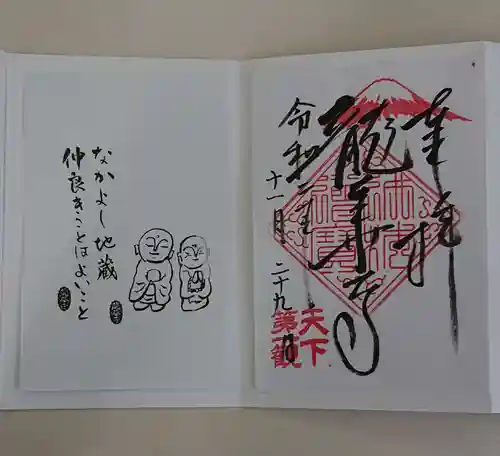 奉拝
龍華寺
令和二年
十一月二十九日
佛法
僧寶
天下
第一観
なかよし地蔵
仲良きことはよいこと